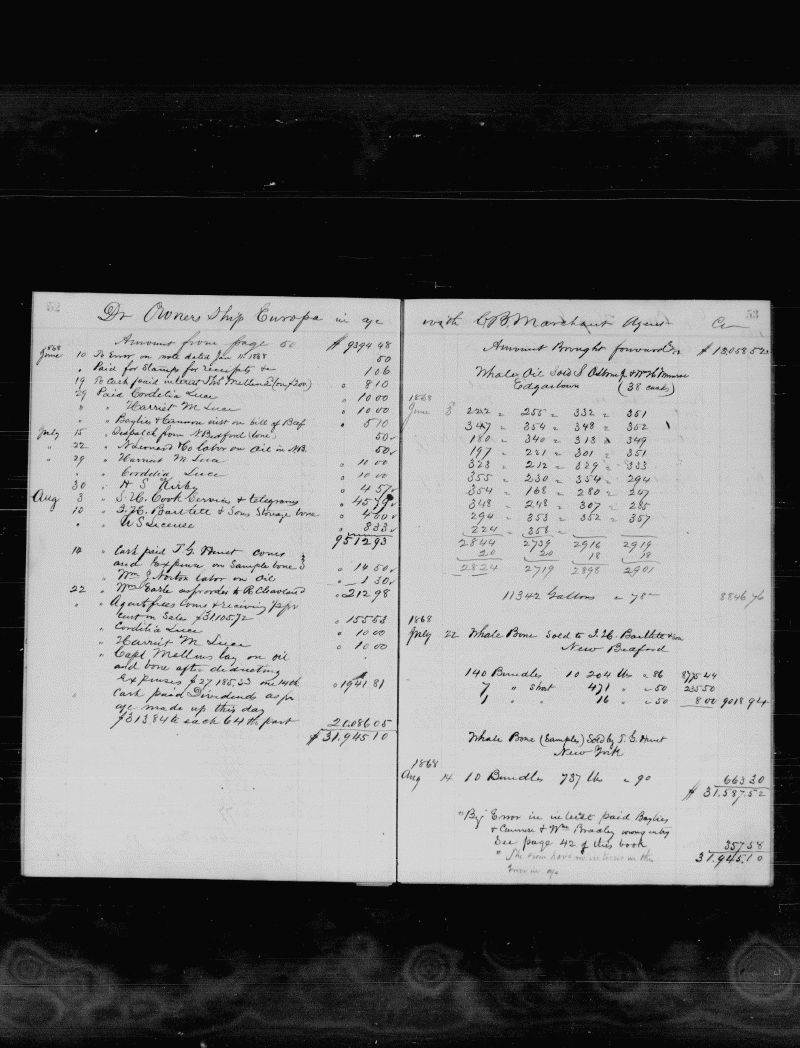 52
Dr Owners Ship Europa in a/c
Amount from page 50 $ 9394 48
1868
June 10 To Error on note dated Jan 11. 1868 50
" Paid for Stamps for receipts &c 1 06
19 To Cash paid interest 8 10
29 Paid Cordelia Luce " 10 00
" " Harriet M Luce " 10 00
" " Baylies & Cannon mist on bill of Beef " 5 10
July 15 " Dispatch from N Bedford (bone) 50
" 22 " & Co labor on Oil in N.B. 50
" 29 " Harriet M Luce " 10 00
" Cordelia Luce " 10 00
30 " H S Kirby " 4 57
Aug 3 " S. H. Cook Services & telegrams " 45 79
10 " I. H. Bartlett & Sons Storage bone " 4 00
" " U S License " 8 33
9512 93
14 " Cash paid J. G. Hunt
and Expense on Sample bone " 14 50
" Wm J. Norton labor on Oil " 1 30
22 " Wm Earle as pr order to R Cleaveland " 212 98
" " Agent fees bone & receiving 1/2 pr
Cent on Sales $31105.72 " 155 53
" Cordelia Luce " 10 00
" Harriet M Luce " 10 00
" Capt Mellens lay on oil
and bone after deducting
Expenses $27185.33 one 14th " 1941.81
" Cash paid Dividends as pr
a/c made up this day
$313 84 to each 64th part 20.086 05
$ 31.945 10
53
with C B Marchant Agent Cr
Amount Brought forward $ 13,058 52
Whale Oil Sold S Osborn Jr & Wm H Munroe
Edgartown (38 casks)
1868
June 8 222 " 255 " 332 " 351
347 " 354 " 348 " 352
180 " 340 " 313 " 349
197 " 221 " 301 " 351
323 " 212 " 329 " 333
355 " 230 " 354 " 294
354 " 168 " 280 " 247
348 " 248 " 307 " 285
294 " 353 " 352 " 357
224 " 358 "
2844 2739 2916 2919
20 20 18 18
2824 2719 2898 2901
11342 Gallons " 78 8846 76
1868
July 22 Whale Bone Sold to I. H. Bartlett & Son
New Bedford
140 Bundles 10 204 lbs " 86 8775 44
7 " Short 471 " " 50 235 50
1 " " 16 " " 50 8 00 9018 94
Whale Bone (Samples) Sold by J. G. Hunt
New York
1868
Aug 14 10 Bundles 737 lbs " 90 663 30
$ 31.587.52
"By" Error in interest paid Baylies
& Cannon & Wm Bradley wrong entry
See page 42 of this book 357 58
31.945.10
have no interest in this
Error in a/c